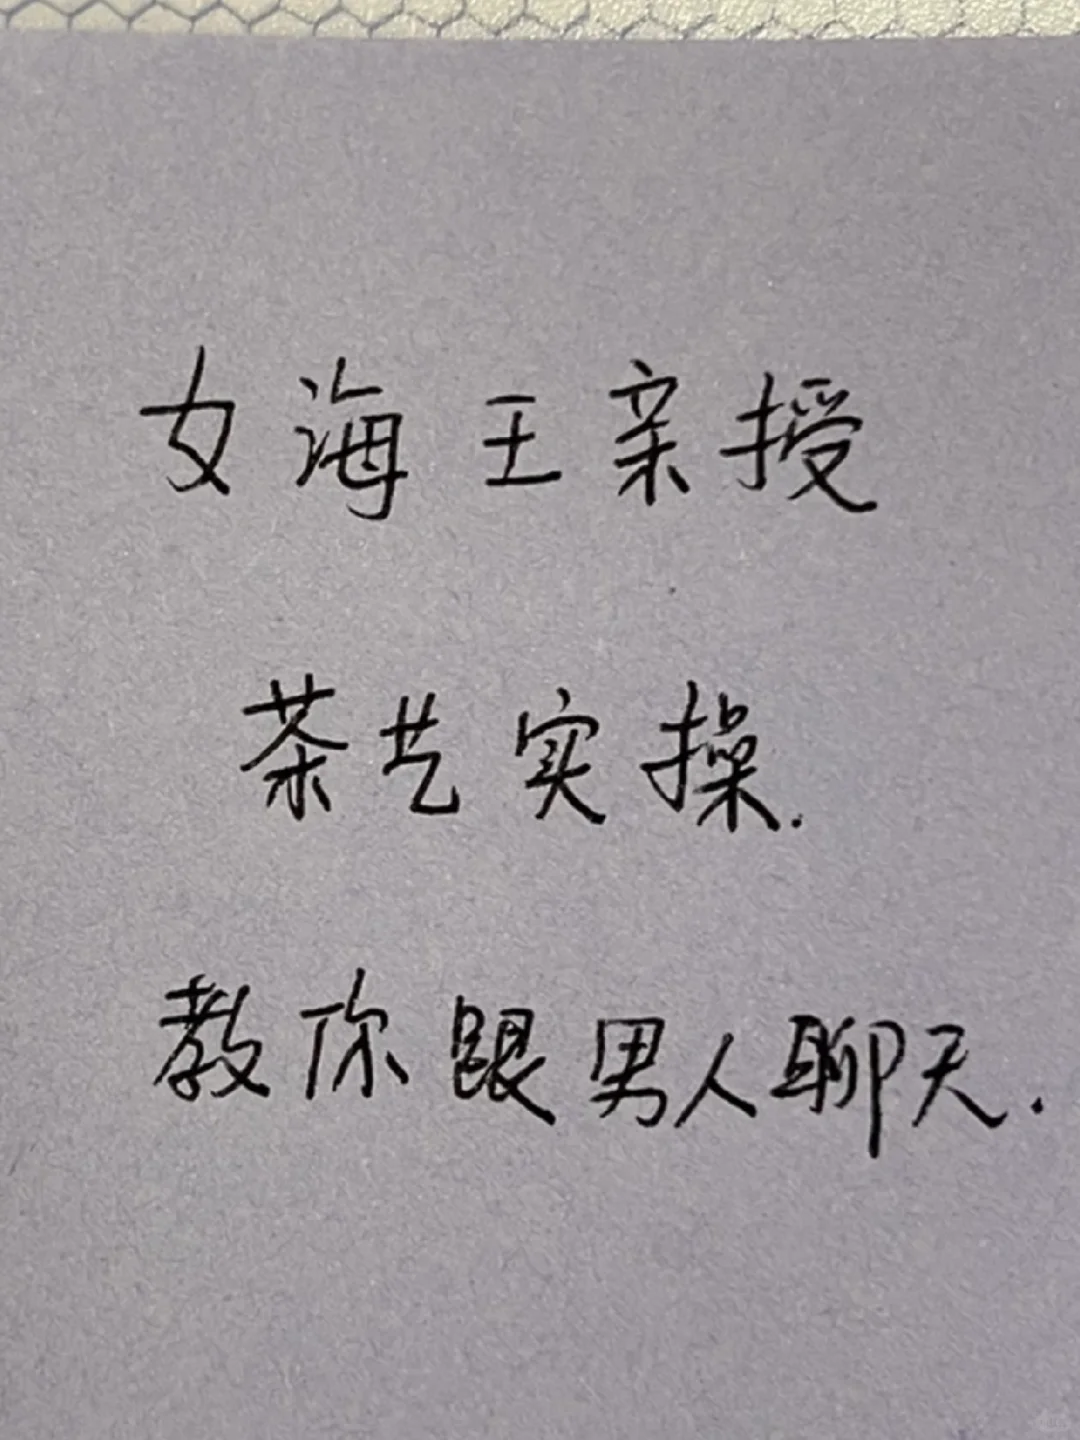 女海王亲授
茶艺实操.
教你跟男人聊天.